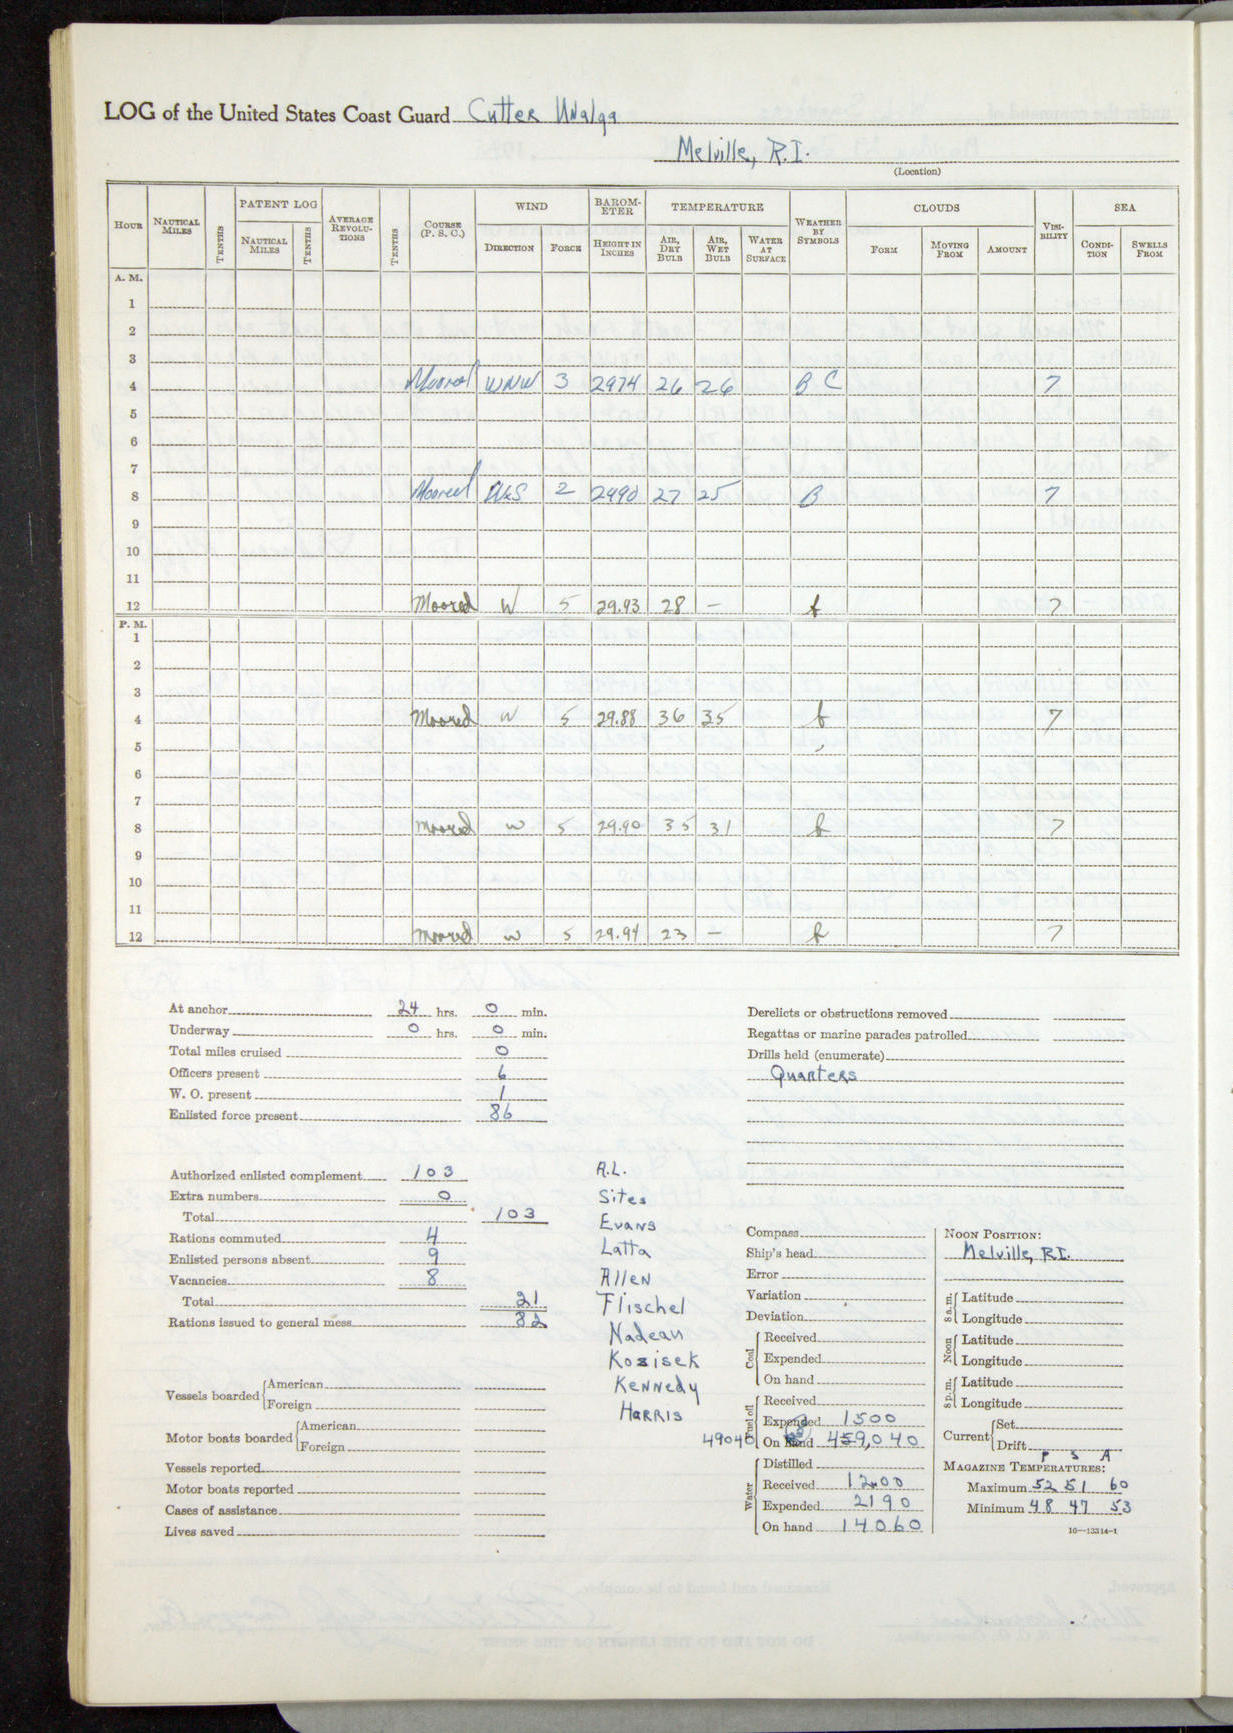 LOG of the United States Coast Guard Cutter Unalga
Melville, R.I.
(Location)
HOUR NAUTICAL MILES TENTHS PATENT LOG NAUTICAL MILES TENTHS AVERAGE REVOLUTIONS TENTHS COURSE (P. S. C.) WIND DIRECTION FORCE BAROMETER HEIGHT IN INCHES TEMPERATURE AIR, DRY BULB AIR, WET BULB WATER AT SURFACE WEATHER BY SYMBOLS CLOUDS FORM MOVING FROM AMOUNT VISIBILITY SEA CONDITION SWELLS FROM
A. M.
1
2
3
4 Moored WNW 3 2974 26 26 B C 7
5
6
7
8 Moored WxS 2 2990 27 25 B 7
9
10
11
12 Moored W 5 29.93 28 - b 7
P. M.
1
2
3
4 Moored W 5 29.88 36 35 b 7
5
6
7
8 Moored W 5 29.90 35 31 b 7
9
10
11
12 Moored W 5 29.94 23 - b 7
At anchor 24 hrs. 0 min.
Underway 0 hrs. 0 min.
Total miles cruised 0
Officers present 6
W. O. present 1
Enlisted force present 86
Authorized enlisted complement 103
Extra numbers 0
Total 103
Rations commuted 4
Enlisted persons absent 9
Vacancies 8
Total 21
Rations issued to general mess 82
Vessels boarded American
Foreign
Motor boats boarded American
Foreign
Vessels reported
Motor boats reported
Cases of assistance
Lives saved
A.L.
Sites
Evans
Latta
Allen
Flischel
Nadeau
Kozisek
Kennedy
Harris
Derelicts or obstructions removed
Regattas or marine parades patrolled
Drills held (enumerate)
Quarters
Compass
Ship's head
Error
Variation
Deviation
Coal Received
Expended
On hand
Fuel oil Received
Expended 1500
49040 On hand 459,040
Water Distilled
Received 1200
Expended 2190
On hand 14060
NOON POSITION:
Melville, R.I.
8 a.m. Latitude
Longitude
Noon Latitude
Longitude
8 p.m. Latitude
Longitude
Current Set
Drift
P S A
MAGAZINE TEMPERATURES:
Maximum 52 51 60
Minimum 48 47 53
10—13314-1